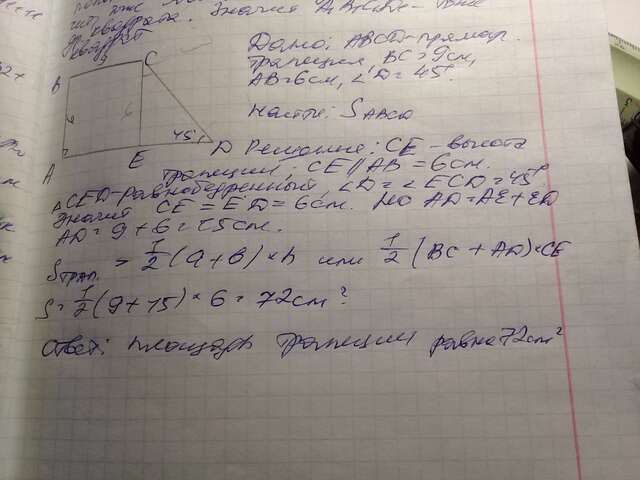 квадрата. Значит A₁B₁C₁D₁ - тоже
квадрат
Дано: ABCD - прямоуг.
трапеция, BC = 9см,
AB = 6см, ∠D = 45°.
Найти: S ABCD
B
C
6
6
45°
A
E
D
Решение: CE - высота
трапеции, CE ∥ AB = 6см.
△CED - равнобедренный, ∠D = ∠ECD = 45°
Значит CE = ED = 6см. Но AD = AE + ED
AD = 9 + 6 = 15см.
Sтрап. = 1/2 (a + b) × h или 1/2 (BC + AD) × CE
S = 1/2 (9 + 15) × 6 = 72 см²
Ответ: площадь трапеции равна 72 см²